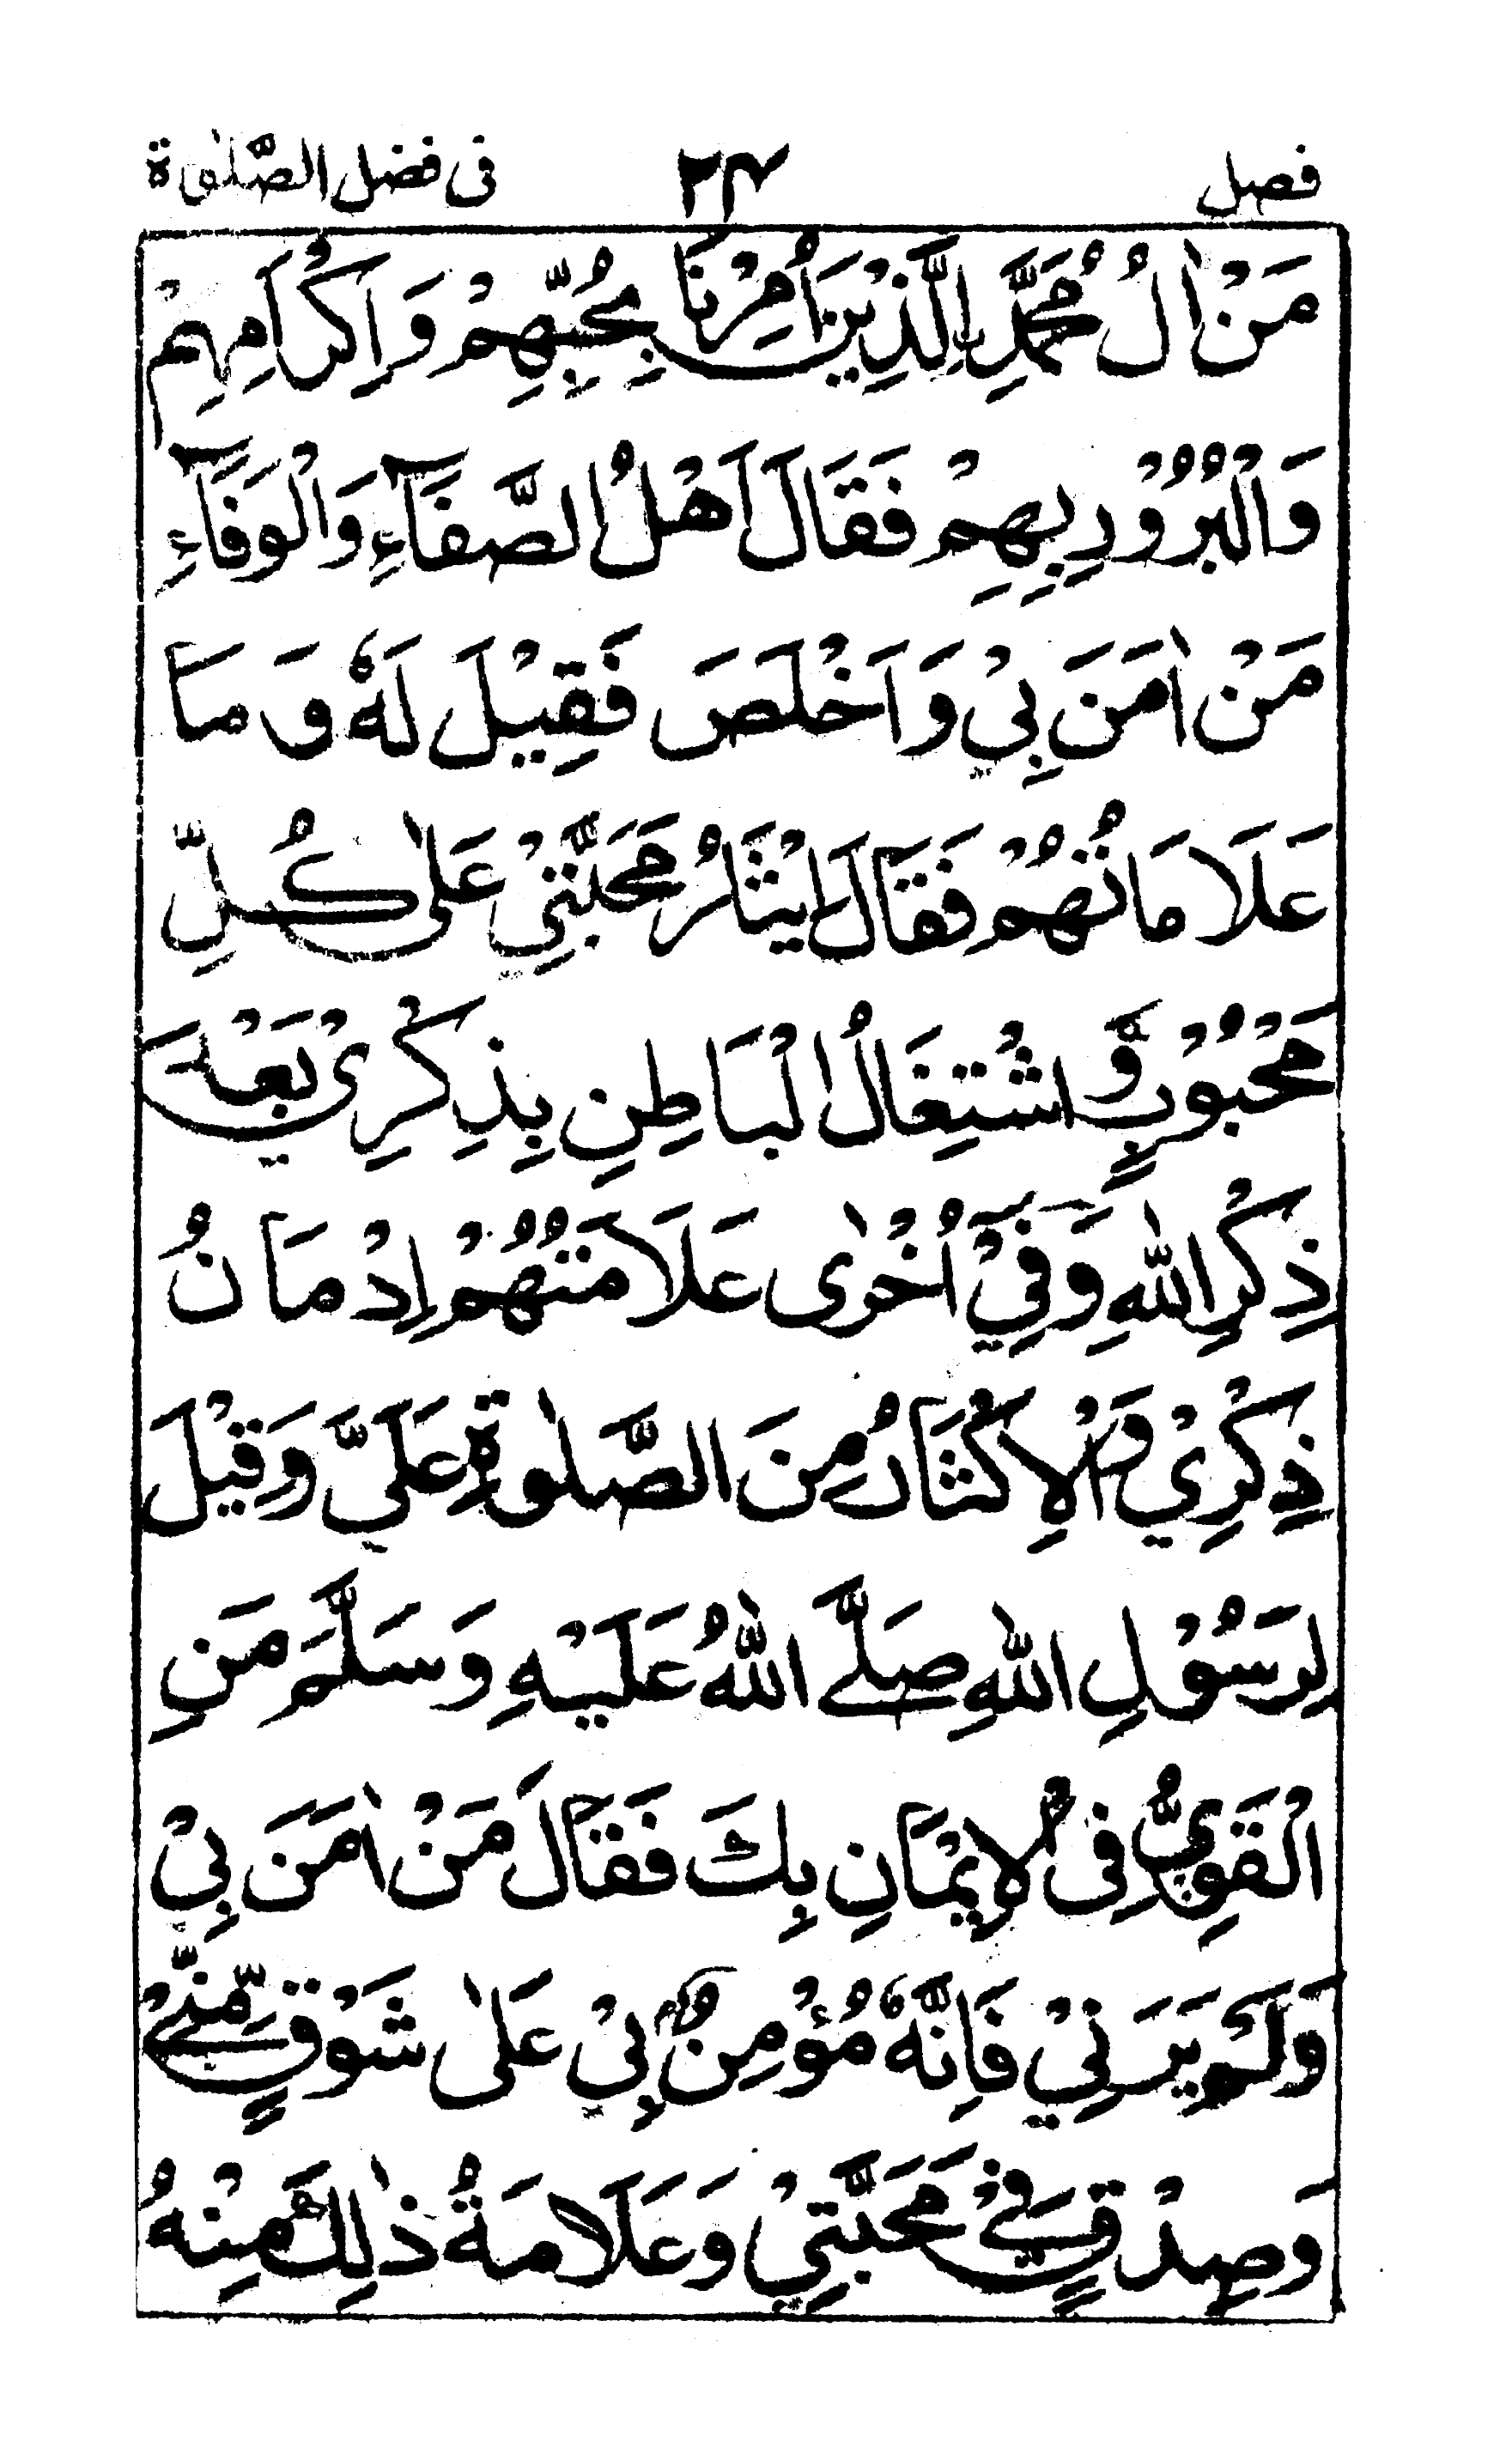 فصل ٢٤ فى فضل الصَّلٰوة
مَنْ اٰلُ مُحَمَّدِ اِلَّذِيْنَ اُمِرْنَا بِحُبِّهِمْ وَاِكْرَامِهِمْ
وَالْبُرُوْرِ بِهِمْ فَقَالَ اَهْلُ الصَّفَآءِ وَالْوَفَآءِ
مَنْ اٰمَنَ بِيْ وَاَخْلَصَ فَقِيْلَ لَهٗ وَمَا
عَلَامَاتُهُمْ فَقَالَ اِيْثَارُ مَحَبَّتِيْ عَلٰى كُلِّ
مَحْبُوْبٍ وَّاشْتِغَالُ الْبَاطِنِ بِذِكْرِيْ بَعْدَ
ذِكْرِ اللهِ وَفِيْٓ اُخْرٰى عَلَامَتُهُمْ اِدْمَانُ
ذِكْرِيْ وَالْاِكْثَارُ مِنَ الصَّلٰوةِ عَلَيَّ وَقِيْلَ
لِرَسُوْلِ اللهِ صَلَّے اللهُ عَلَيْهِ وَسَلَّمَ مَنِ
الْقَوِيُّ فِى الْاِيْمَانِ بِكَ فَقَالَ مَنْ اٰمَنَ بِيْ
وَلَمْ يَرَنِيْ فَاِنَّهٗ مُؤْمِنٌ بِيْ عَلٰى شَوْقٍ مِّنِّےْ
وَصِدْقٍ فِےْ مَحَبَّتِيْ وَعَلَامَةُ ذٰلِكَ مِنْهُ